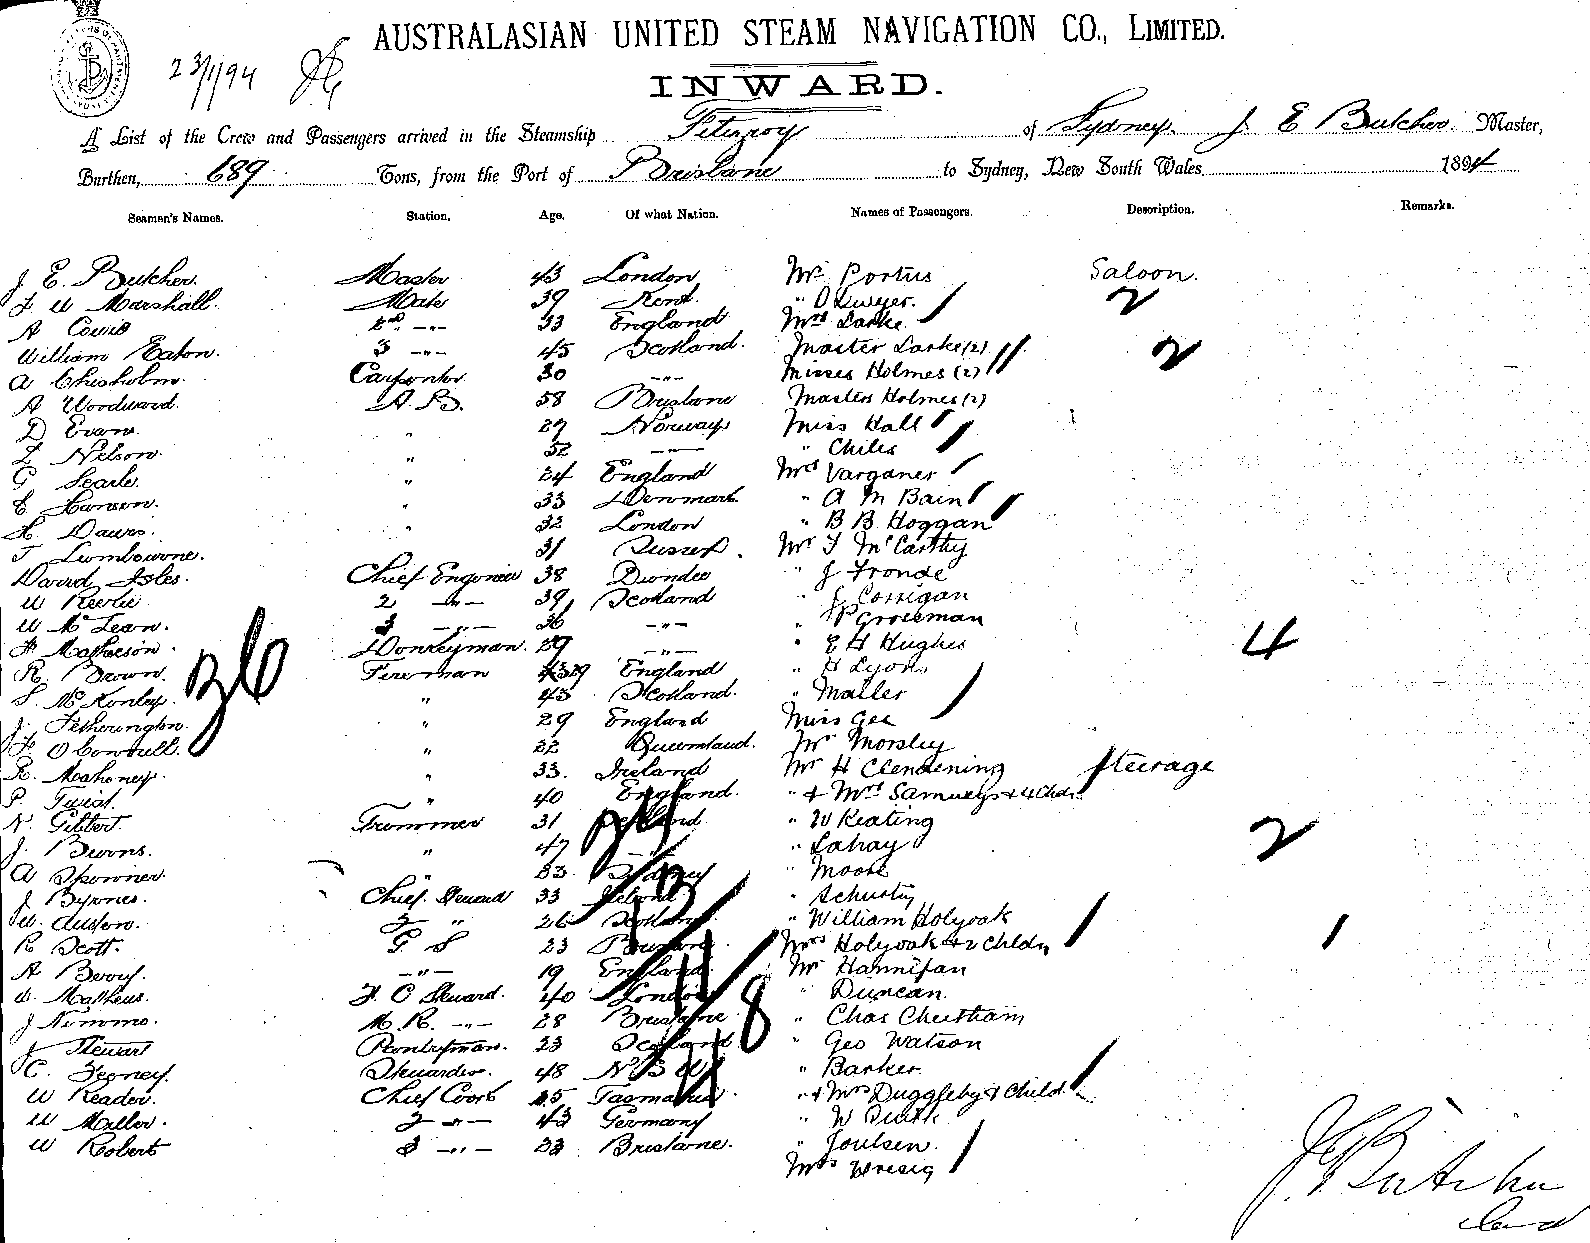 AUSTRALASIAN UNITED STEAM NAVIGATION CO., LIMITED.
23/1/94
INWARD.
A List of the Crew and Passengers arrived in the Steamship Fitzroy of Sydney. J E Butcher. Master,
Burthen, 689 Tons, from the Port of Brisbane to Sydney, New South Wales, 1894
Seamen's Names. Station. Age. Of what Nation. Names of Passengers. Description. Remarks.
J. E. Butcher. Master 43 London Mr Portus Saloon.
F W Marshall. Mate 39 Kent. " O'Dwyer. 2
A Cowie 2nd -"- 33 England Mrs Larke
William Eaton. 3 -"- 45 Scotland. Master Larke (2) 2
A Chisholm. Carpenter 30 -"- Misses Holmes (2)
A Woodward. A.B. 58 Brisbane Masters Holmes (2)
D Evans. " 27 Norway Miss Hall
Z Nelson. " 52 -"- " Chiles
G Searle. " 24 England Mrs Varganer
E Hanson. " 33 Denmark " A M Bain
H Dawes. " 32 London " B B. Hoggan
T Lumbourne. 31 Sussex. Mr T McCarthy
David Isles. Chief Engineer 38 Dundee " J Fronde
W Reerie 2 -"- 39 Scotland " J Corrigan
W McLean. 3 -"- 36 -"- " P Grossman
F Matheson. Donkeyman. 29 -"- " E H Hughes 4
R. Brown. Fireman 29 England " H Lyons
S. McKonley. " 43 Scotland. " Mailer
36
J. Fetherington. " 29 England Miss Gee
F O'Connell. " 22 Queensland. Mr Morsley
R. Mahoney. " 33. Ireland Mr H Clendening Steerage
P. Twist. " 40 England. " & Mrs Samuels & 4 Chdn
N. Gilbert. Trimmer 31 " W Keating 2
J. Bevons. " 47 " Lahay
A Spowner. " 23. Sydney " Moore
J Byrnes. Chief Steward 33 Ireland " Schustig
W. Auston. 2 " 26 Scotland " William Holyoak
R Scott. G S 23 Brisbane. Mrs Holyoak & 2 Chldn 1
A Bevoy. -"- 19 England. Mr Hannifan
W. Mathews. F. C Steward. 40 London " Duncan.
J Nimmo. M. R. -"- 28 Brisbane " Chas Cheetham
J Stewart Pantryman. 23 Scotland " Geo Watson
118
C. Fegney. Stewardess. 48 N S W " Barker.
W Reader. Chief Cook 25 Tasmania " & Mrs Duggleby & Child.
W Miller. 2 -"- 43 Germany " W
W Robert 3 -"- 23 Brisbane. " Joulsen.
Mrs Wresig
J. E. Butcher